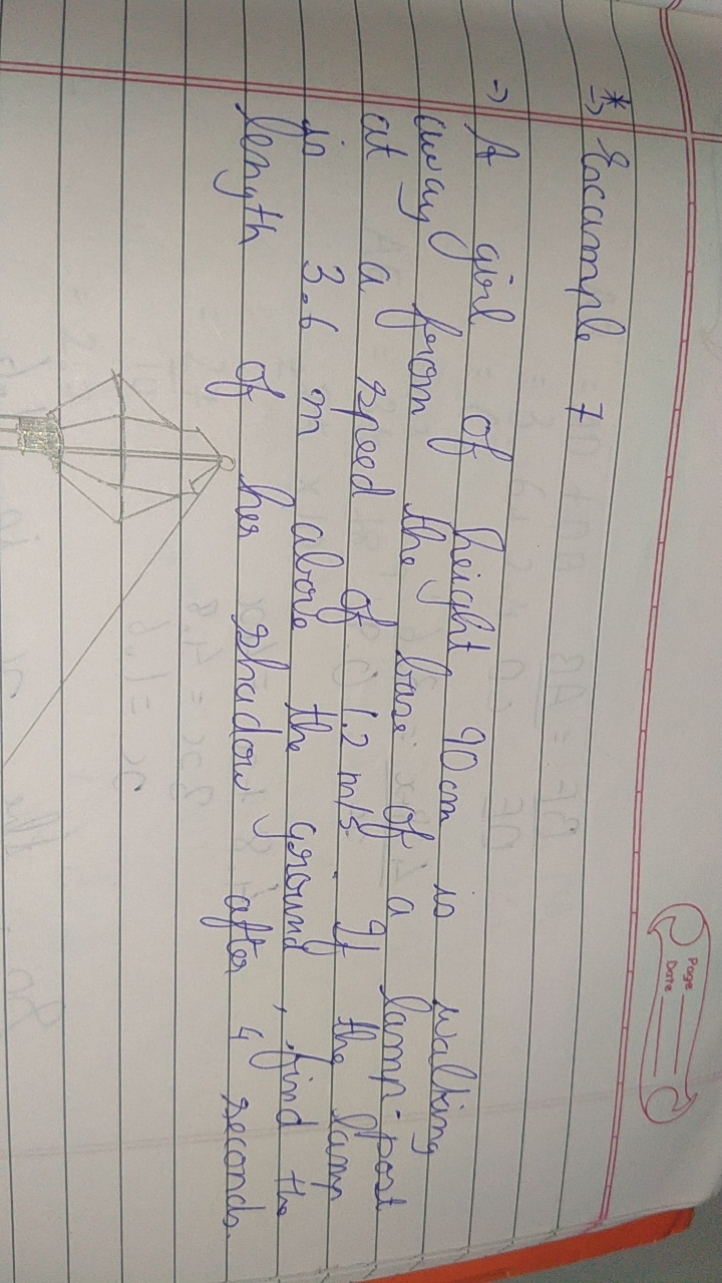 Page
Date
* → Example 7
→ A girl of height 90cm is walking
away from the base of a lamp-post
at a speed of 1.2 m/s. If the lamp
is 3.6 m above the ground, find the
length of her shadow after 4 seconds.